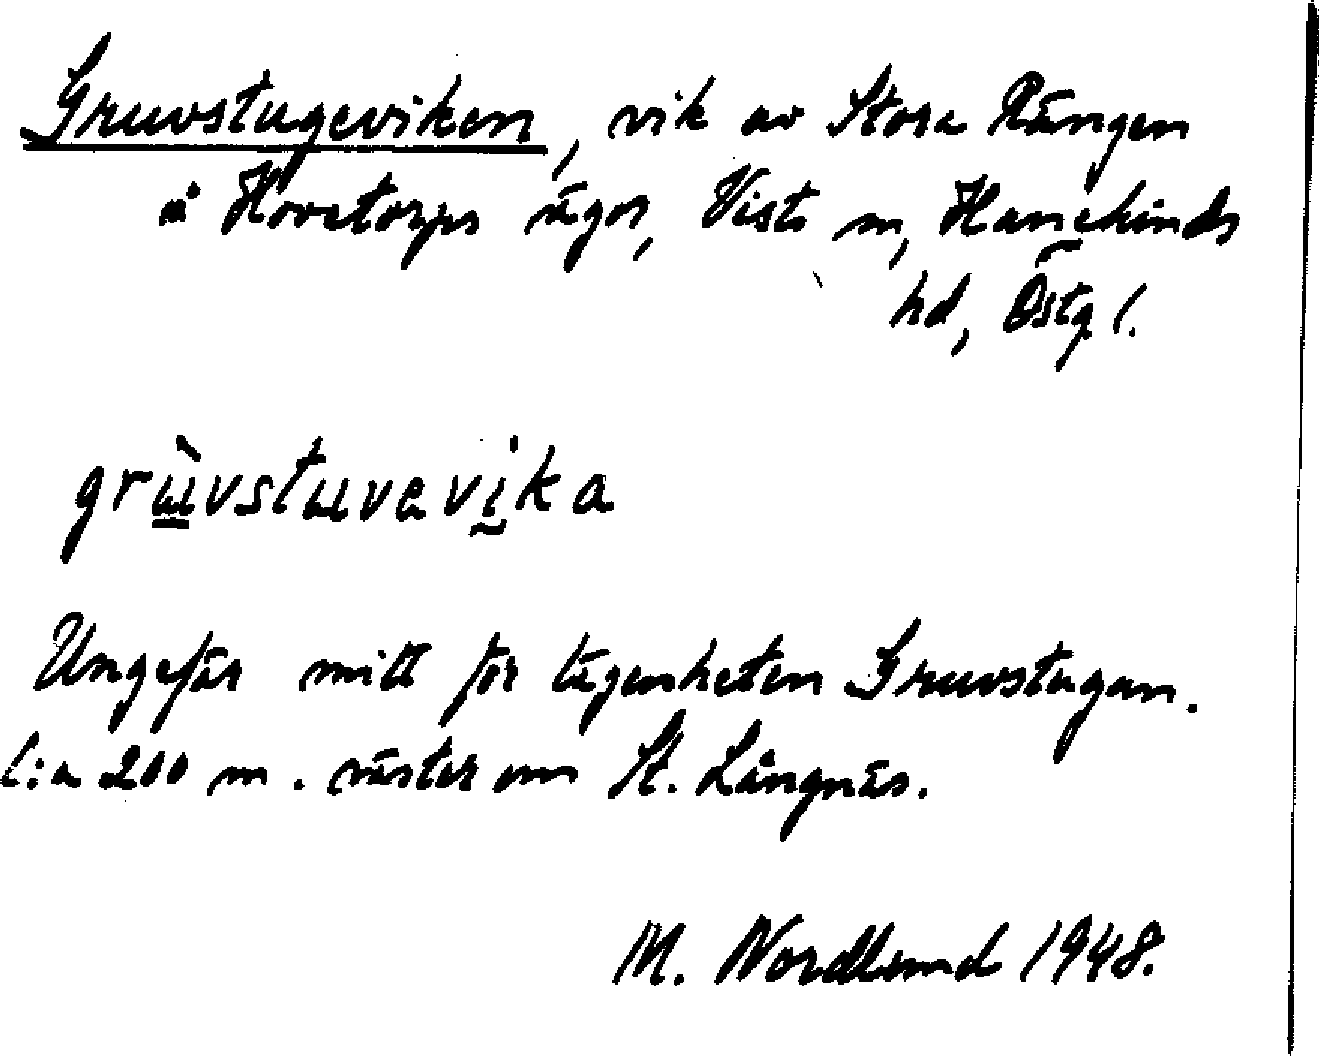 Gruvstugeviken, vik av Stora Rängen
å Hovetorps ägor, Vists sn, Hanekinds
hd, Östg l.
grùvstuvevika
Ungefär mitt för lägenheten Gruvstugan.
C:a 200 m. väster om St. Långnäs.
M. Nordlund 1948.